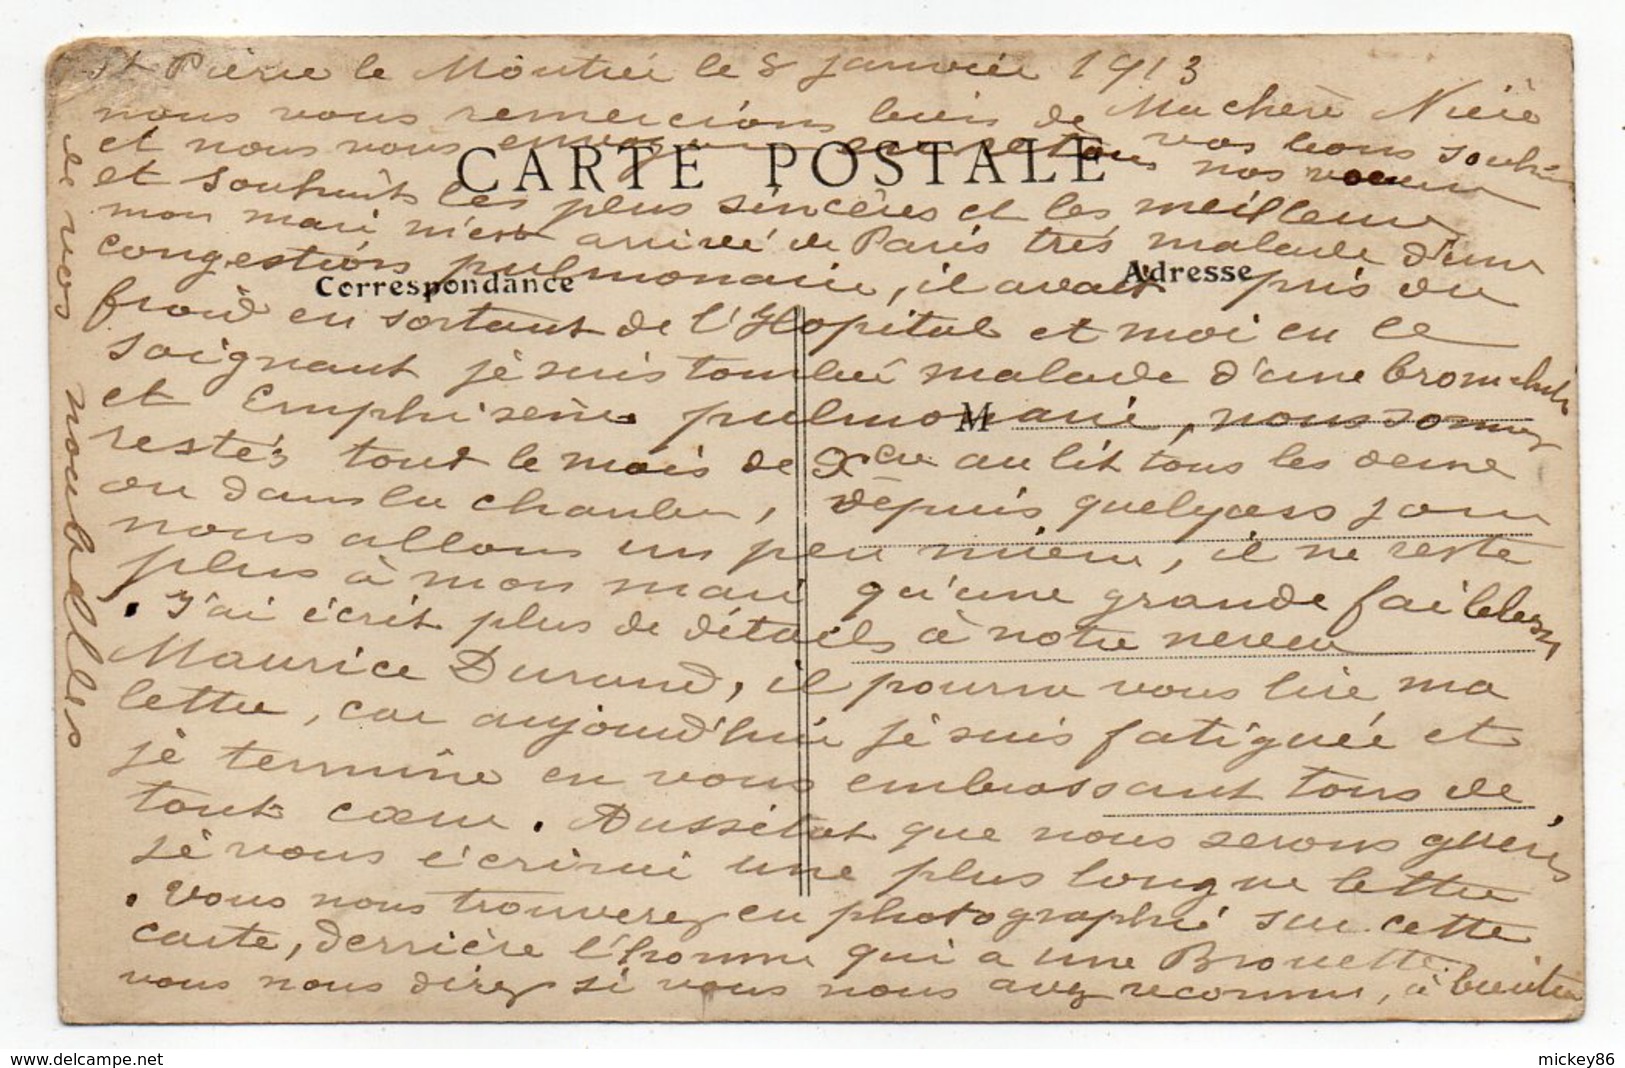 St Pierre le Môutier le 8 janvier 1913
Ma chère Nièce
nous vous remercions bien de vos bons souhaits
et nous vous envoyons en retour nos vœux
et souhaits les plus sincères et les meilleurs
CARTE POSTALE
mon mari m'est arrivé de Paris très malade d'une
congestion pulmonaire, il avait pris du
Correspondance
Adresse
froid en sortant de l'Hopital et moi en le
soignant je suis tombée malade d'une bronchite
et Emphisème pulmonaire, nous sommes
M
restés tout le mois de Xbre au lit tous les deux
ou dans la chambre, depuis quelques jours
nous allons un peu mieux, il ne reste
plus à mon mari qu'une grande faiblesse
. J'ai écrit plus de détails à notre neveu
Maurice Durand, il pourra vous lire ma
lettre, car aujourd'hui je suis fatiguée et
je termine en vous embrassant tous de
tout cœur. Aussitôt que nous serons guéris
je vous écrirai une plus longue lettre
. Vous nous trouverez en photographie sur cette
carte, derrière l'homme qui a une Brouette
vous nous direz si vous nous avez reconnu, à bientôt
de vos nouvelles
www.delcampe.net
mickey86